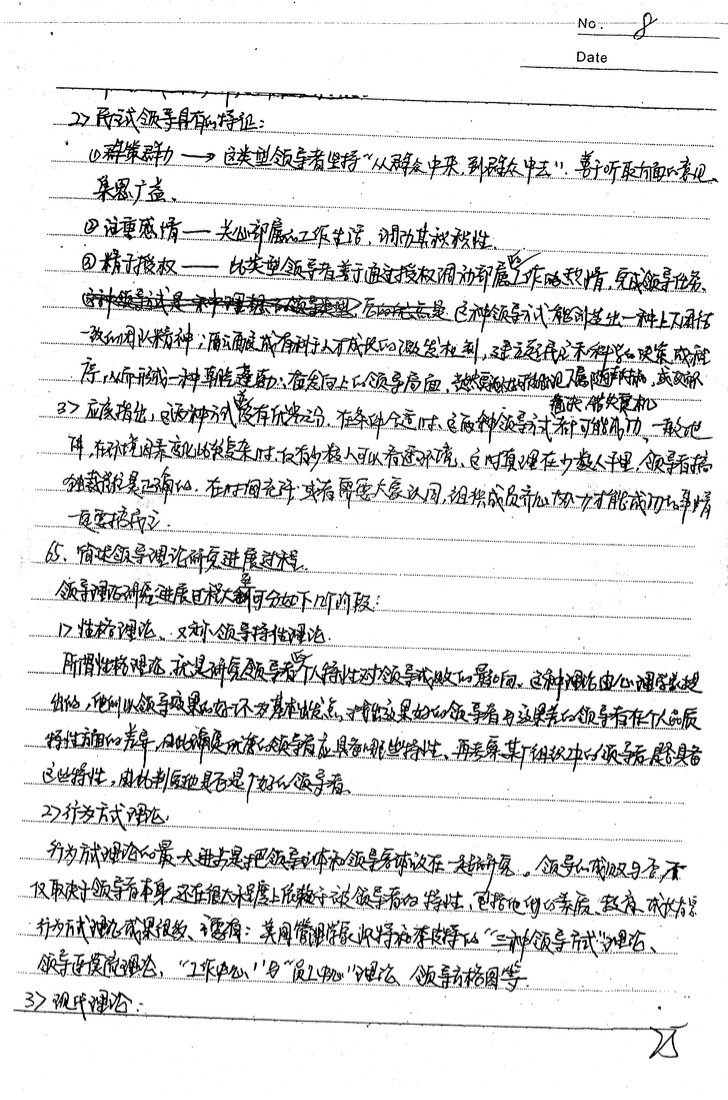 No. 8
Date
2> 民主式领导具有的特征:
①群策群力 —→ 这类型领导者坚持"从群众中来,到群众中去",善于听取方面的意见、
集思广益、
②注重感情 — 关心部属的工作生活,调动其积极性.
③精于授权 —— 此类型领导善于通过授权调动部属的工作热情,完成领导任务.
这种领导方式是一种理想的领导类型,这种领导方式能创造出一种上下团结
一致的团队精神;而且有利于人才成长的激发机制,建立起民主和科学的决策
序,从而形成一种奋发向上的领导局面,
痛决、错失良机
3> 应该指出,这两种方式没有优劣之分.在条件合适时,这两种领导方式都可能成功.一般地
讲,在环境因素变化比较复杂时,仅有少数人可以看透环境、这时真理在少数人手里,领导者搞
独裁往往是正确的.在时间允许,或者需要大家认同,组织成员齐心协力才能成功的事情
一定要搞民主.
65、简述领导理论研究进展过程.
领导理论研究进展过程大致可分如下几个阶段:
1> 性格理论、又称领导特性理论.
所谓性格理论,就是研究领导者的个人特性对领导成败的影响、这种理论由心理学家提
出的,他们以领导效果的好坏为基本出发点,找出效果好的领导者与效果差的领导者在个人品质
特性方面的差异,由此确定优秀的领导者应具备哪些特性、再考察某个组织中的领导者是否具备
这些特性,由此判断他是否是个好的领导者、
2>行为方式理论
行为方式理论的最大进步是把领导主体和领导客体放在一起研究。领导的成败与否,不
仅取决于领导者本身,还在很大程度上依赖于被领导者的特性,包括他们的素质、态度、成长
行为方式理论成果很多、主要有:美国管理学家怀特和李皮特的"三种领导方式"理论、
领导连续流理论、"工作中心"与"员工中心"理论、领导方格图等.
3> 现代理论:
25